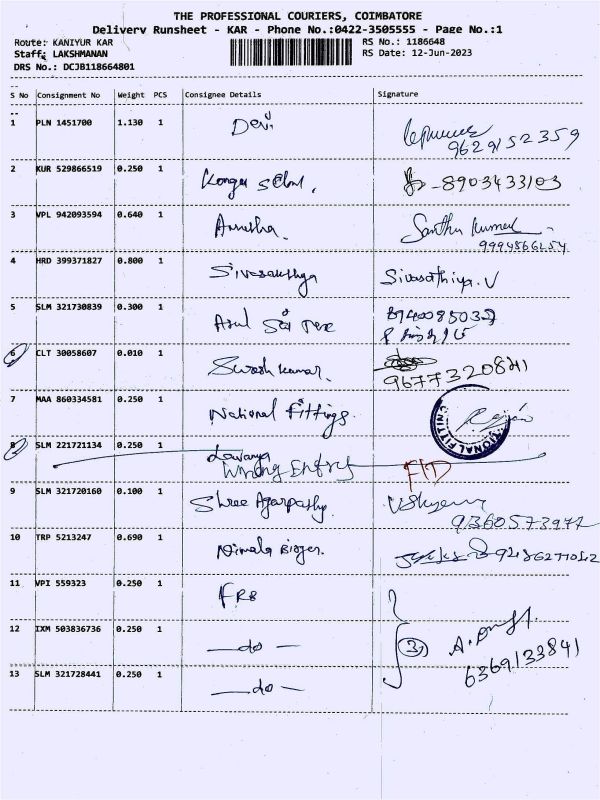 THE PROFESSIONAL COURIERS, COIMBATORE
Delivery Runsheet - KAR - Phone No.:0422-3505555 - Page No.:1
Route: KANIYUR KAR RS No.: 1186648
Staff: LAKSHMANAN RS Date: 12-Jun-2023
DRS No.: DCJB118664801
S No Consignment No Weight PCS Consignee Details Signature
1 PLN 1451700 1.130 1 Devi
9629152359
2 KUR 529866519 0.250 1 Kongu 8903433103
3 VPL 942093594 0.640 1 Anusha. Santhu Kumar
4 HRD 399371827 0.800 1 Sivasakthya Sivasathiya.V
5 SLM 321730839 0.300 1 Arul Sri Tex
6 CLT 30058607 0.010 1 Suresh Kumar.
7 MAA 860334581 0.250 1 National Fittings.
8 SLM 221721134 0.250 1 Lavanya
Wrong Entry
9 SLM 321720160 0.100 1 Shree Agarpathy
9360573972
10 TRP 5213247 0.690 1 Nirmala
11 VPI 559323 0.250 1 FRB
12 IXM 503836736 0.250 1 —do— 3
13 SLM 321728441 0.250 1 —do— 6369133841